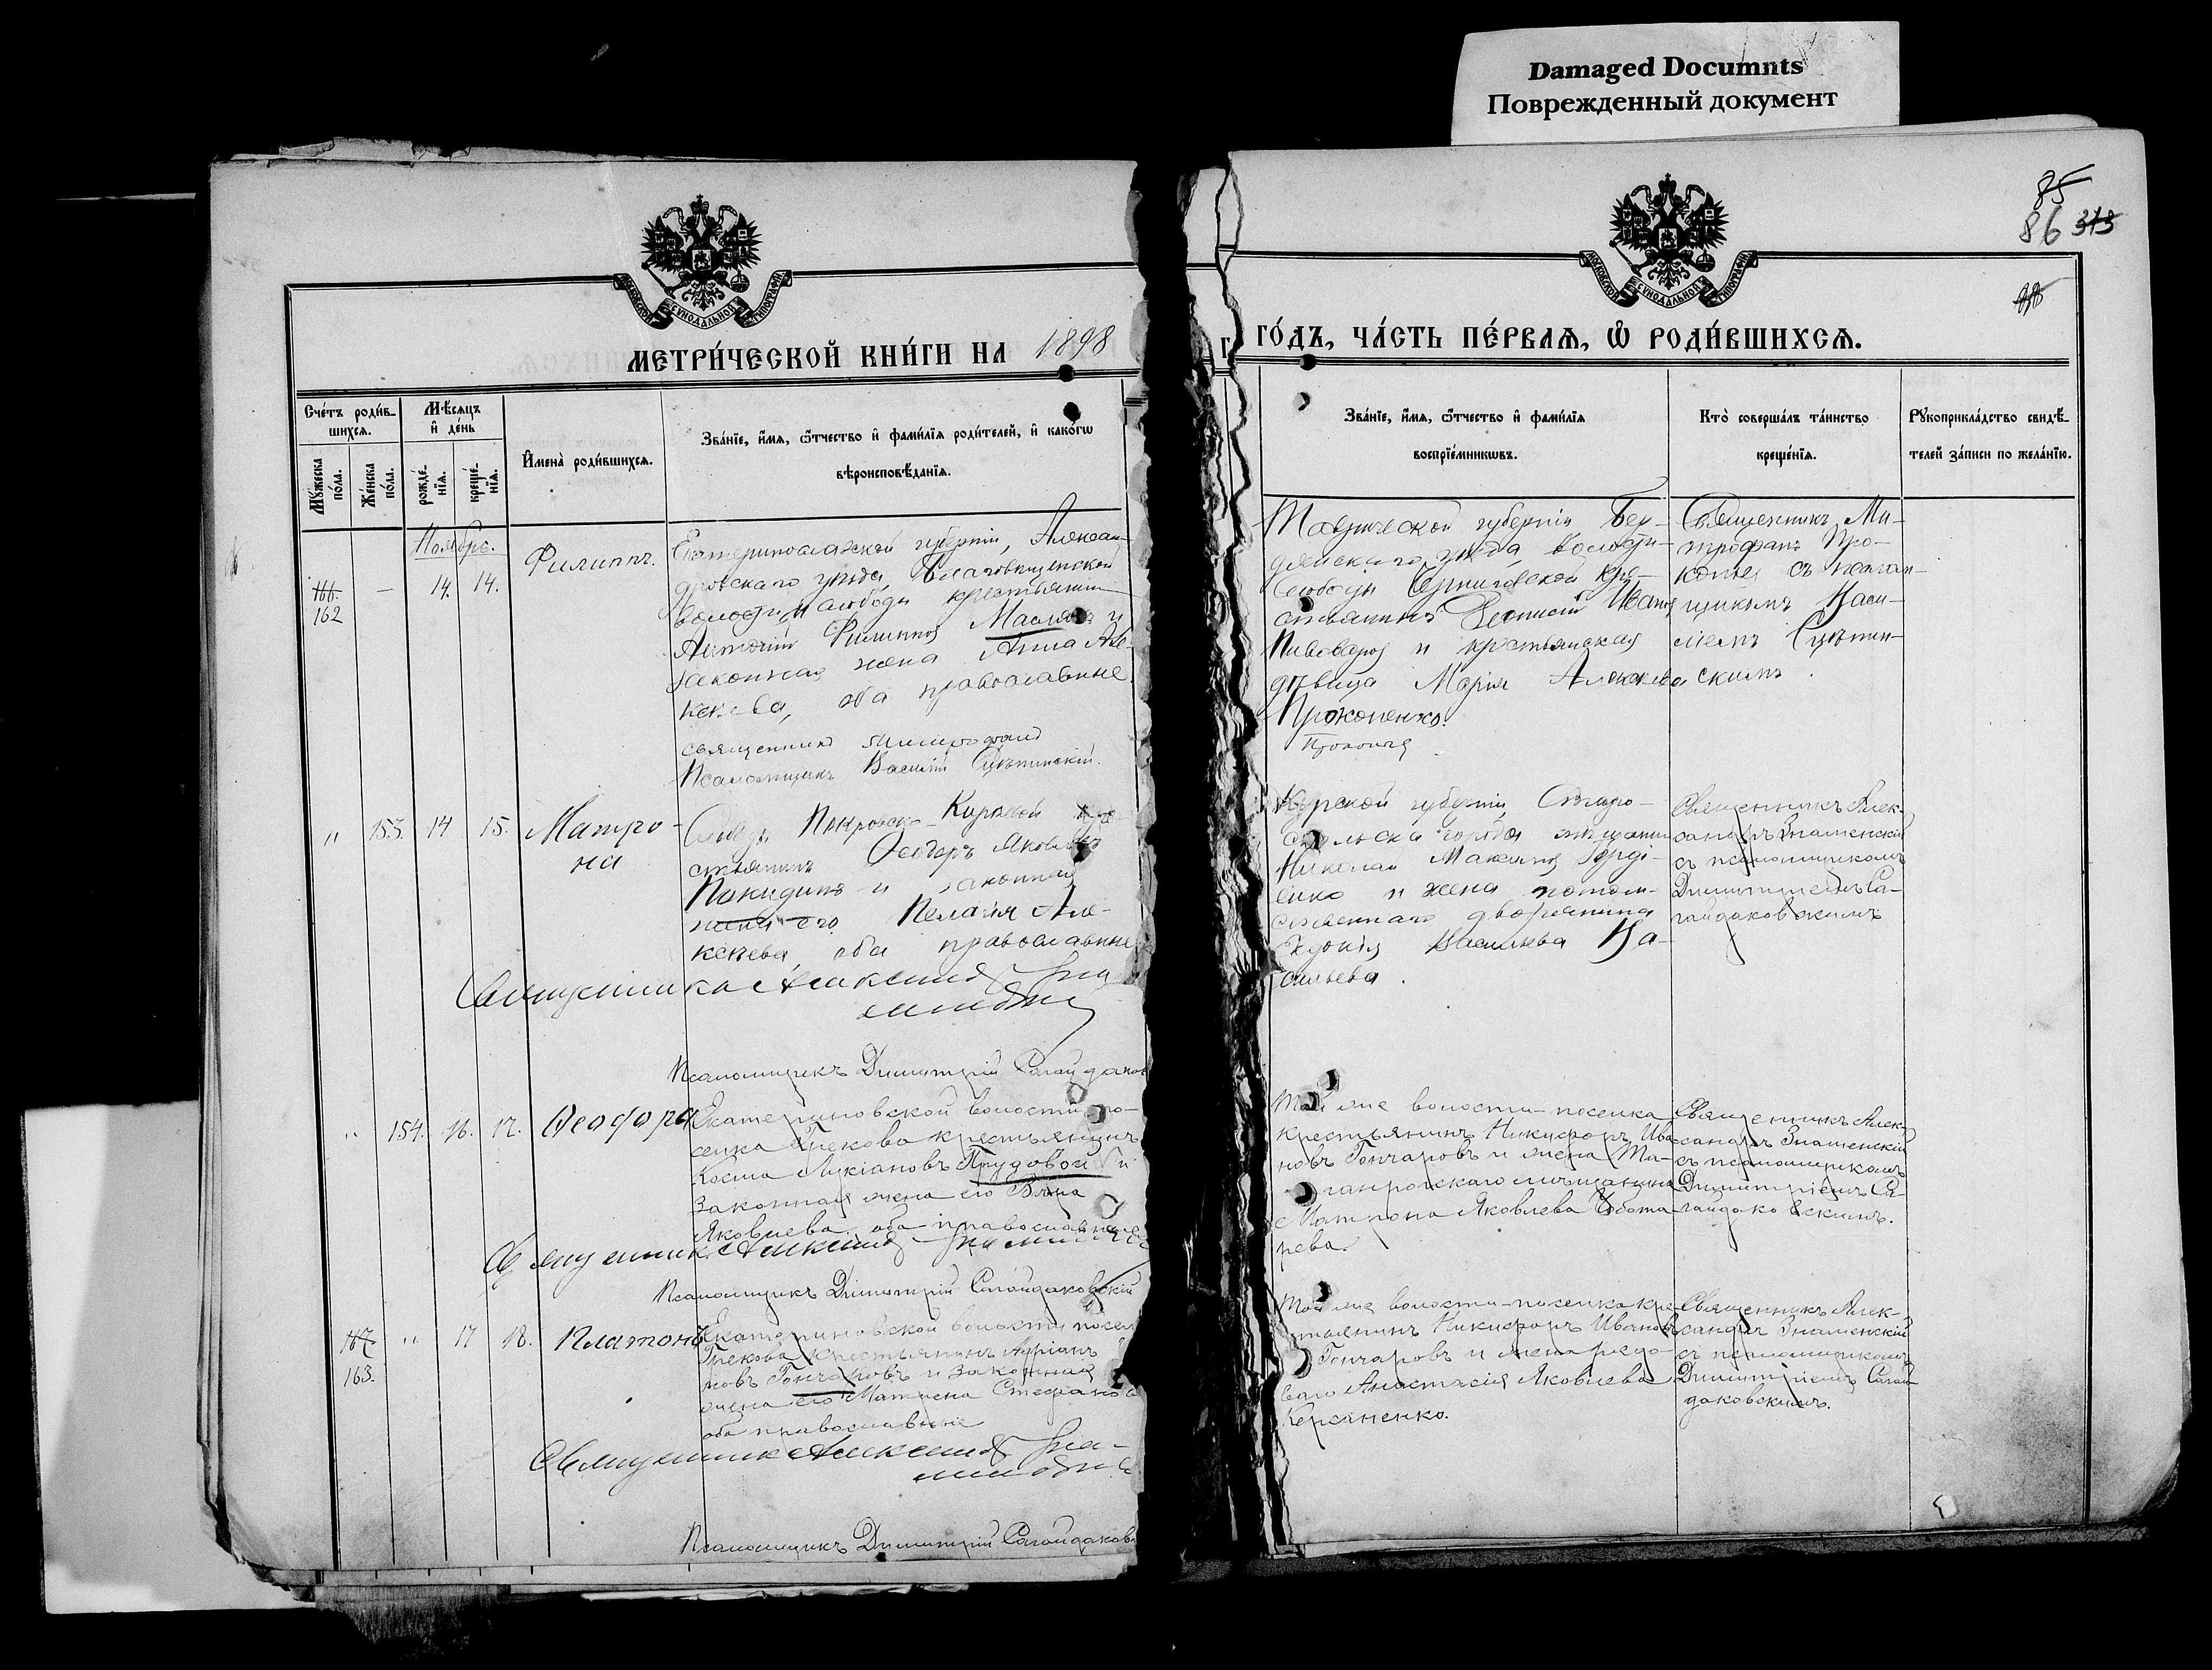 Damaged Documnts
Поврежденный документ
85
86 313
МЕТРИ́ЧЕСКОЙ КНИ́ГИ НА 1898
ГО́ДЪ, ЧА́СТЬ ПЕ́РВАѦ, Ѿ РОДИ́ВШИХСѦ.
Сче́тъ роди́в-
шихсѧ.
Мѣ́сѧцъ
и҆ де́нь
Мꙋ́жеска
по́ла.
Же́нска
по́ла.
рожде́-
нїѧ.
креще́-
нїѧ.
И҆мена̀ роди́вшихсѧ.
Зва́нїе, и҆́мѧ, ѻ҆́тчество и҆ фами́лїѧ роди́телей, и҆ како́гѡ
вѣроисповѣ́данїѧ.
Зва́нїе, и҆́мѧ, ѻ҆́тчество и҆ фами́лїѧ
воспрїе́мникѡвъ.
Кто̀ соверша́лъ та́инство
креще́нїѧ.
Рꙋкоприкла́дство свидѣ́-
телей за́писи по жела́нїю.
Ноябрь.
166.
162
—
14.
14.
Филиппъ.
Екатеринославской губерніи, Алексан-
дровскаго уѣзда, Благовѣщенской
волости и слободы крестьянинъ
Филиппов и
законная жена Анна Але-
ксѣева, оба православные.
священникъ Митрофанъ
Псаломщикъ Василій Сцѣпинскій.
Таврической губерніи Бер-
дянскаго уѣзда, волости
слободы Черниговской кре-
стьянинъ Иванов
Пивоваров и крестьянская
дѣвица Марія Алексѣева
Прокопенко.
Священникъ Ми-
трофанъ Про-
копья съ псалом-
щикомъ Васи-
ліемъ Сцѣпин-
скимъ.
"
153.
14
15.
Матро-
на
Покровско-Кирѣевой кре-
стьянинъ Ѳеодоръ Яковлевъ
Покидинъ и законная
жена его Пелагія Але-
ксѣева, оба православные
Священникъ Александръ Зна-
менскій
Псаломщикъ Димитрій Сагайдаков
Курской губерніи, Старо-
оскольска города мѣщанинъ
Николай Максимов Горді-
енко и жена потом-
ственнаго дворянина
Васильева Ва-
сильева.
Священникъ Алек-
сандръ Знаменскій
съ псаломщикомъ
Димитріемъ Са-
гайдаковскимъ
"
154.
16.
17.
Ѳеодора
Екатериновской волости по-
селка Грекова крестьянинъ
Косма Лукіановъ Прудовой и
законная жена его
Яковлева, оба православные
Священникъ Александръ Знаменскій
Псаломщикъ Димитрій Сагайдаковскій
Той же волости-поселка
крестьянинъ Никифоръ Ива-
новъ Гончаровъ и жена Та-
ганрогскаго мѣщанина
Матрона Яковлева Чебота-
рева.
Священникъ Алек-
сандръ Знаменскій
съ псаломщикомъ
Димитріемъ Са-
гайдаковскимъ.
167
163.
"
17
18.
Платонъ
Екатериновской волости посел
Грекова крестьянинъ Адріанъ
новъ Гончаровъ и законная
жена его Матрена Стефанова
оба православные
Священникъ Александръ Зна-
менскій
Псаломщикъ Димитрій Сагайдаков
Той же волости-поселка кре-
стьянинъ Никифоръ Ивановъ
Гончаровъ и жена рядо-
ваго Анастасія Яковлева
Священникъ Алек-
сандръ Знаменскій
съ псаломщикомъ
Димитріемъ Сагай-
даковскимъ.